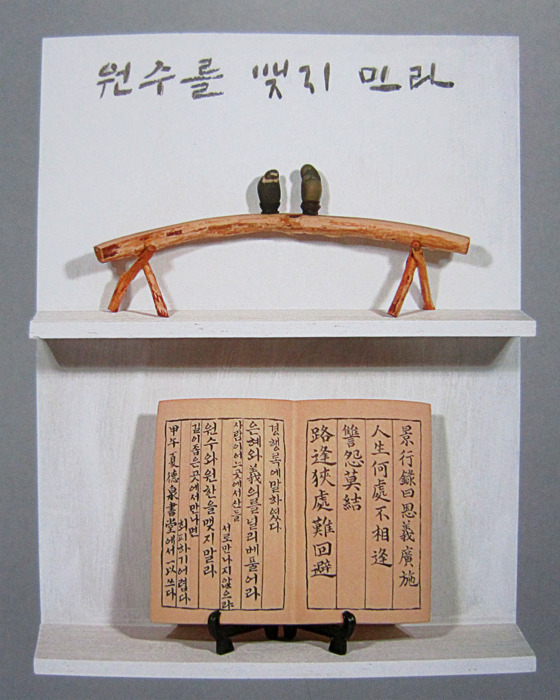 원수를 맺지 말라
景行錄曰恩義廣施
人生何處不相逢
讐怨莫結
路逢狹處難回避
경행록에 말하였다
은혜와 義의를 널리 베풀어라
사람이 어느 곳에서 산들
서로 만나지 않으랴
원수와 원한을 맺지 말라
길이 좁은 곳에서 만나면
회피하기 어렵다
甲午 夏 德泉書堂에서 一以 쓰다